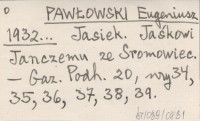 PAWŁOWSKI Eugeniusz
1932... Jasiek. Jaśkowi
Janczemu ze Sromowiec.
— Gaz. Podh. 20, nry 34,
35, 36, 37, 38, 39.